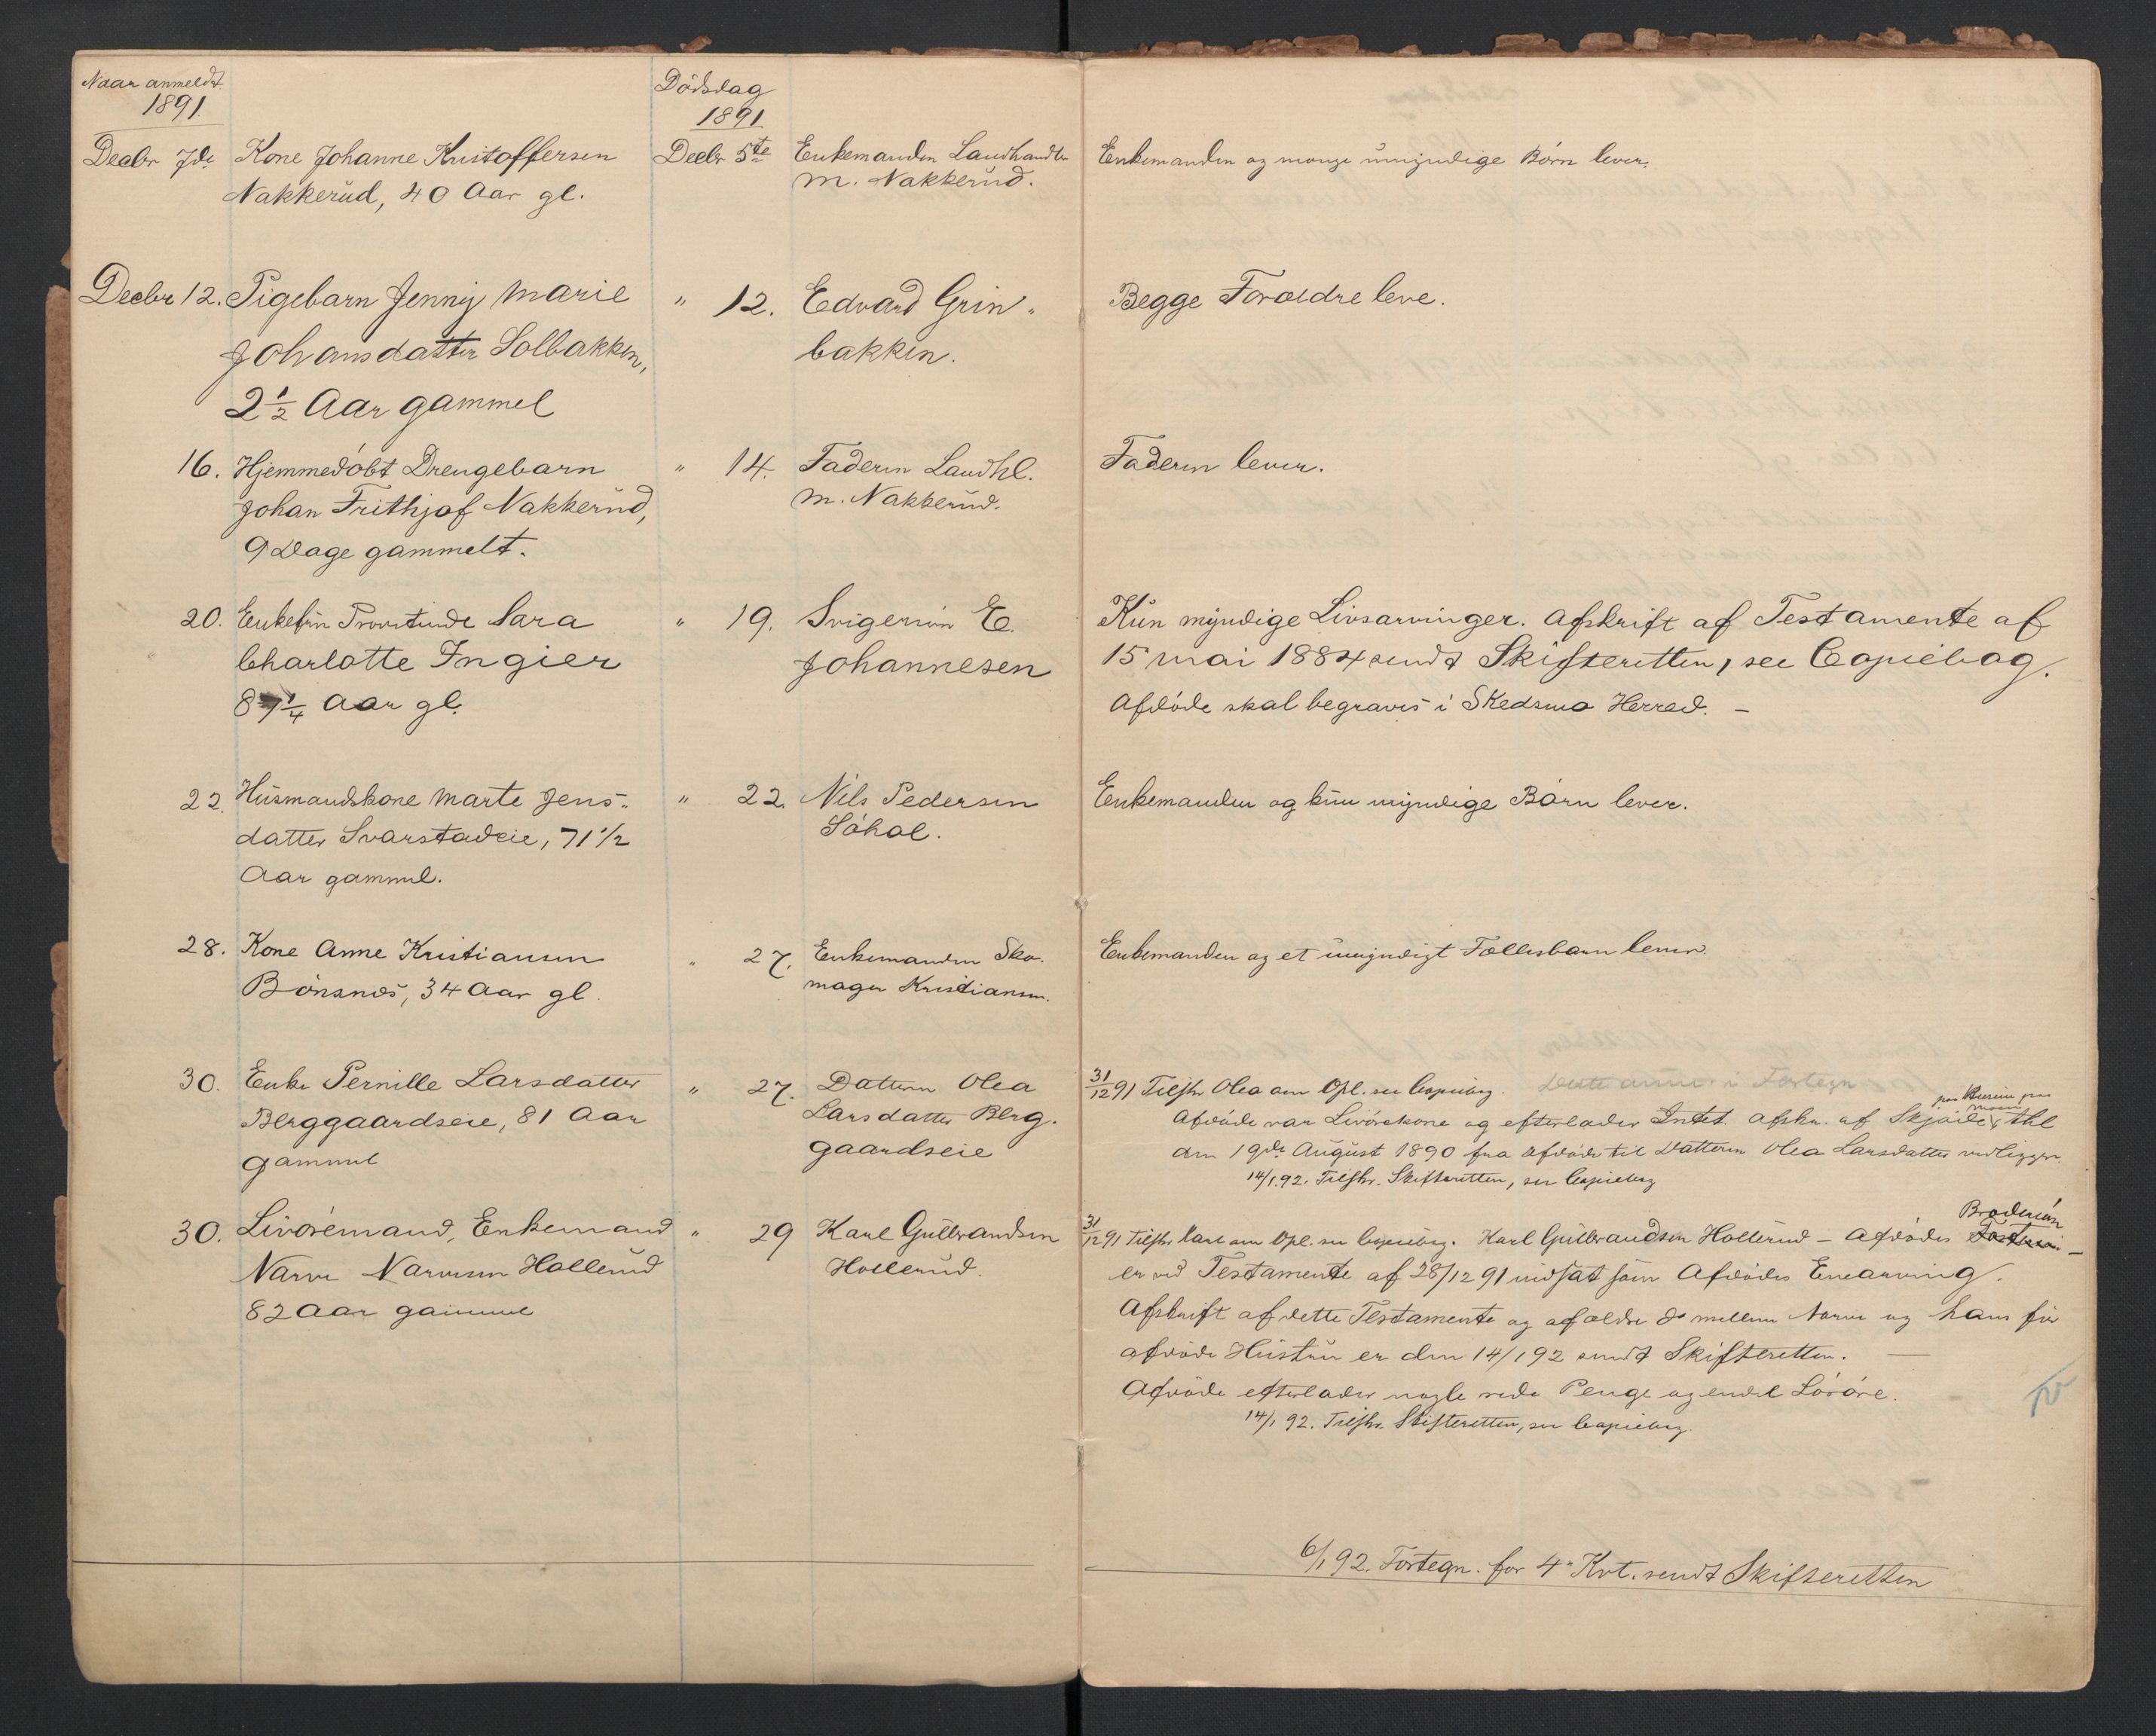 Naar anmeldt
1891
Dødsdag
1891
Decbr 7de Kone Johanne Kristoffersen
Nakkerud, 40 Aar gl.
Decbr 5te Enkemanden Landhandl.
M. Nakkerud.
Enkemanden og mange umyndige Børn lever.
Decbr 12. Pigebarn Jenny Marie
Johansdatter Solbakken,
2 1/2 Aar gammel
" 12. Edvard Grin-
bakken.
Begge Forældre leve.
16. Hjemmedøbt Drengebarn
Johan Frithjof Nakkerud,
9 Dage gammelt.
" 14. Faderen Landhl.
M. Nakkerud.
Faderen lever.
20. Enkefru Provstinde Sara
Charlotte Ingier
87 1/4 Aar gl.
" 19. Svigersøn E.
Johannesen
Kun myndige Livsarvinger. Afskrift af Testamente af
15 mai 1884 sendt Skifteretten, see Copiebog.
Afdøde skal begraves i Skedsmo Herred. –
22. Husmandskone Marte Jens-
datter Svarstadeie, 71 1/2
Aar gammel.
" 22. Nils Pedersen
Søhol.
Enkemanden og kun myndige Børn lever.
28. Kone Anne Kristiansen
Bønsnæs, 34 Aar gl.
" 27. Enkemanden Sko-
mager Kristiansen.
Enkemanden og et umyndigt Fællesbarn lever.
30. Enke Pernille Larsdatter
Berggaardseie, 81 Aar
gammel
" 27. Datteren Olea
Larsdatter Berg-
gaardseie
31/12 91 Tilskr. Olea om Opl. see Copiebog. i Fortegn
Afdøde var Livørekone og efterlader Intet. Afskr. af Skjøde thl
den 19de August 1890 fra Afdøde til Datteren Olea Larsdatter vedligger
14/1 92. Tilskr. Skifteretten, see Copiebog
30. Livøremand, Enkemand
Narve Narvesen Hollerud
82 Aar gammel
" 29 Karl Gulbrandsen
Hollerud.
Brodersøn
31/12 91 Tilskr. Karl om Opl. see Copiebog. Karl Gulbrandsen Hollerud – Afdødes –
er ved Testamente af 28/12 91 indsat som Afdødes Enearving.
Afskrift af dette Testamente og af ældre do mellem Narve og hans før
afdøde Hustru er den 14/1 92 sendt Skifteretten. –
Afdøde efterlader nogle rede Penge og endel Løsøre.
14/1 92. Tilskr. Skifteretten, see Copiebog.
6/1 92. Fortegn. for 4" Kvt. sendt Skifteretten